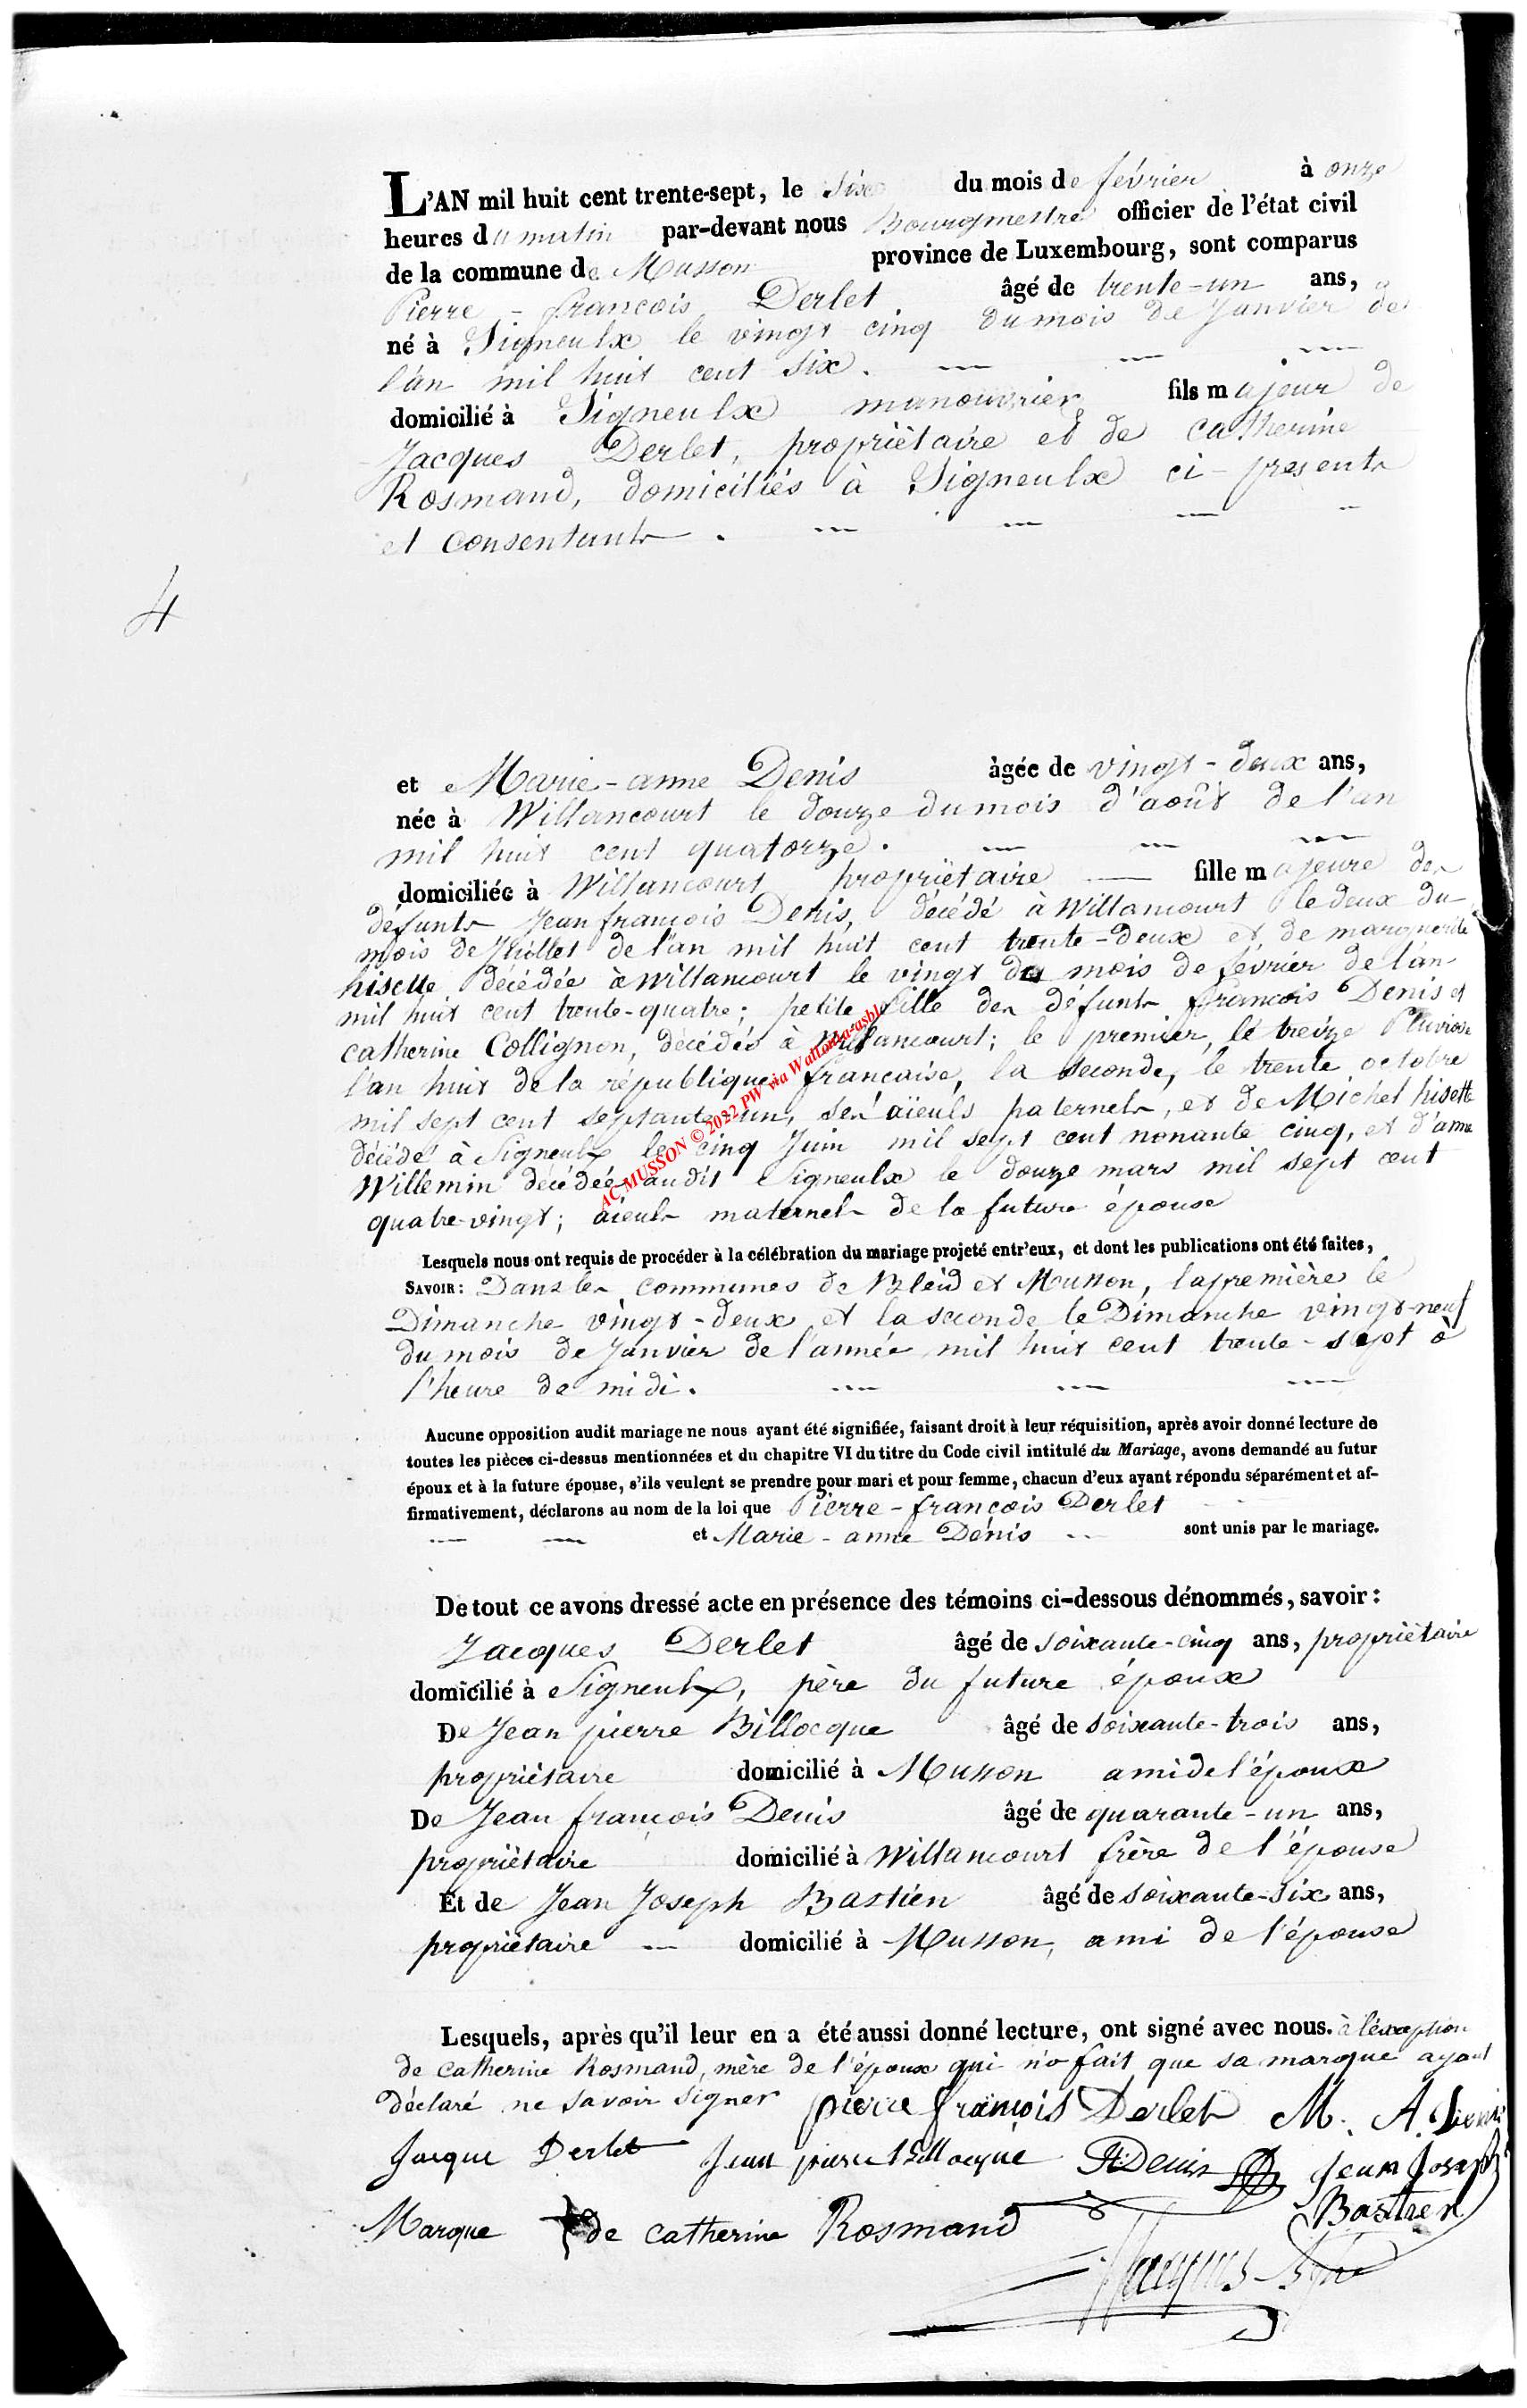 L'AN mil huit cent trente-sept, le six du mois de février à onze
heures du matin par-devant nous Bourgmestre officier de l'état civil
de la commune de Musson province de Luxembourg, sont comparus
Pierre - françois Derlet âgé de trente-un ans,
né à Signeulx le vingt cinq du mois de Janvier de
l'an mil huit cent six.
domicilié à Signeulx manouvrier fils majeur de
Jacques Derlet, propriètaire et de catherine
Rosmand, domiciliés à Signeulx ci-presents
et consentants.
4
et Marie-anne Denis âgée de vingt-deux ans,
née à Willancourt le douze du mois d'août de l'an
mil huit cent quatorze.
domiciliée à Willancourt propriètaire fille majeure des
défunts Jean françois Denis, décédé à Willancourt le deux du
mois de Juillet de l'an mil huit cent trente-deux et de marguerite
hisette décédée à Willancourt le vingt du mois de février de l'an
mil huit cent trente-quatre; petite fille des défunts françois Denis et
catherine Collignon, décédés à Willancourt; le premier, le treize Pluviose
l'an huit de la république française, la seconde, le trente octobre
mil sept cent septante-un, ses aïeuls paternels, et de Michel hisette
décédé à Signeulx le cinq Juin mil sept cent nonante cinq, et d'anne
Willemin décédée audit Signeulx le douze mars mil sept cent
quatre-vingt; aieuls maternels de la future épouse
AC MUSSON © 2022 PW via Wallonia-asbl
Lesquels nous ont requis de procéder à la célébration du mariage projeté entr'eux, et dont les publications ont été faites,
SAVOIR: Dans les communes de Bleid et Musson, la première le
Dimanche vingt-deux et la seconde le Dimanche vingt-neuf
du mois de Janvier de l'année mil huit cent trente-sept à
l'heure de midi.
Aucune opposition audit mariage ne nous ayant été signifiée, faisant droit à leur réquisition, après avoir donné lecture de
toutes les pièces ci-dessus mentionnées et du chapitre VI du titre du Code civil intitulé du Mariage, avons demandé au futur
époux et à la future épouse, s'ils veulent se prendre pour mari et pour femme, chacun d'eux ayant répondu séparément et af-
firmativement, déclarons au nom de la loi que Pierre-françois Derlet
et Marie-anne Dénis sont unis par le mariage.
De tout ce avons dressé acte en présence des témoins ci-dessous dénommés, savoir:
Jacques Derlet âgé de soixante-cinq ans, propriètaire
domicilié à Signeulx, père du future époux
De Jean pierre Billocque âgé de soixante-trois ans,
propriètaire domicilié à Musson ami de l'époux
De Jean françois Denis âgé de quarante-un ans,
propriètaire domicilié à Willancourt frère de l'épouse
Et de Jean Joseph Bastien âgé de soixante-six ans,
propriètaire domicilié à Musson, ami de l'épouse
Lesquels, après qu'il leur en a été aussi donné lecture, ont signé avec nous. à l'éxception
de catherine Rosmand, mère de l'époux qui n'a fait que sa marque ayant
déclaré ne savoir signer pierre françois Derlet M. A. Denis
Jacque Derlet Jean piere Billocque Denis Jean Joseph
Bastien
Marque de catherine Rosmand